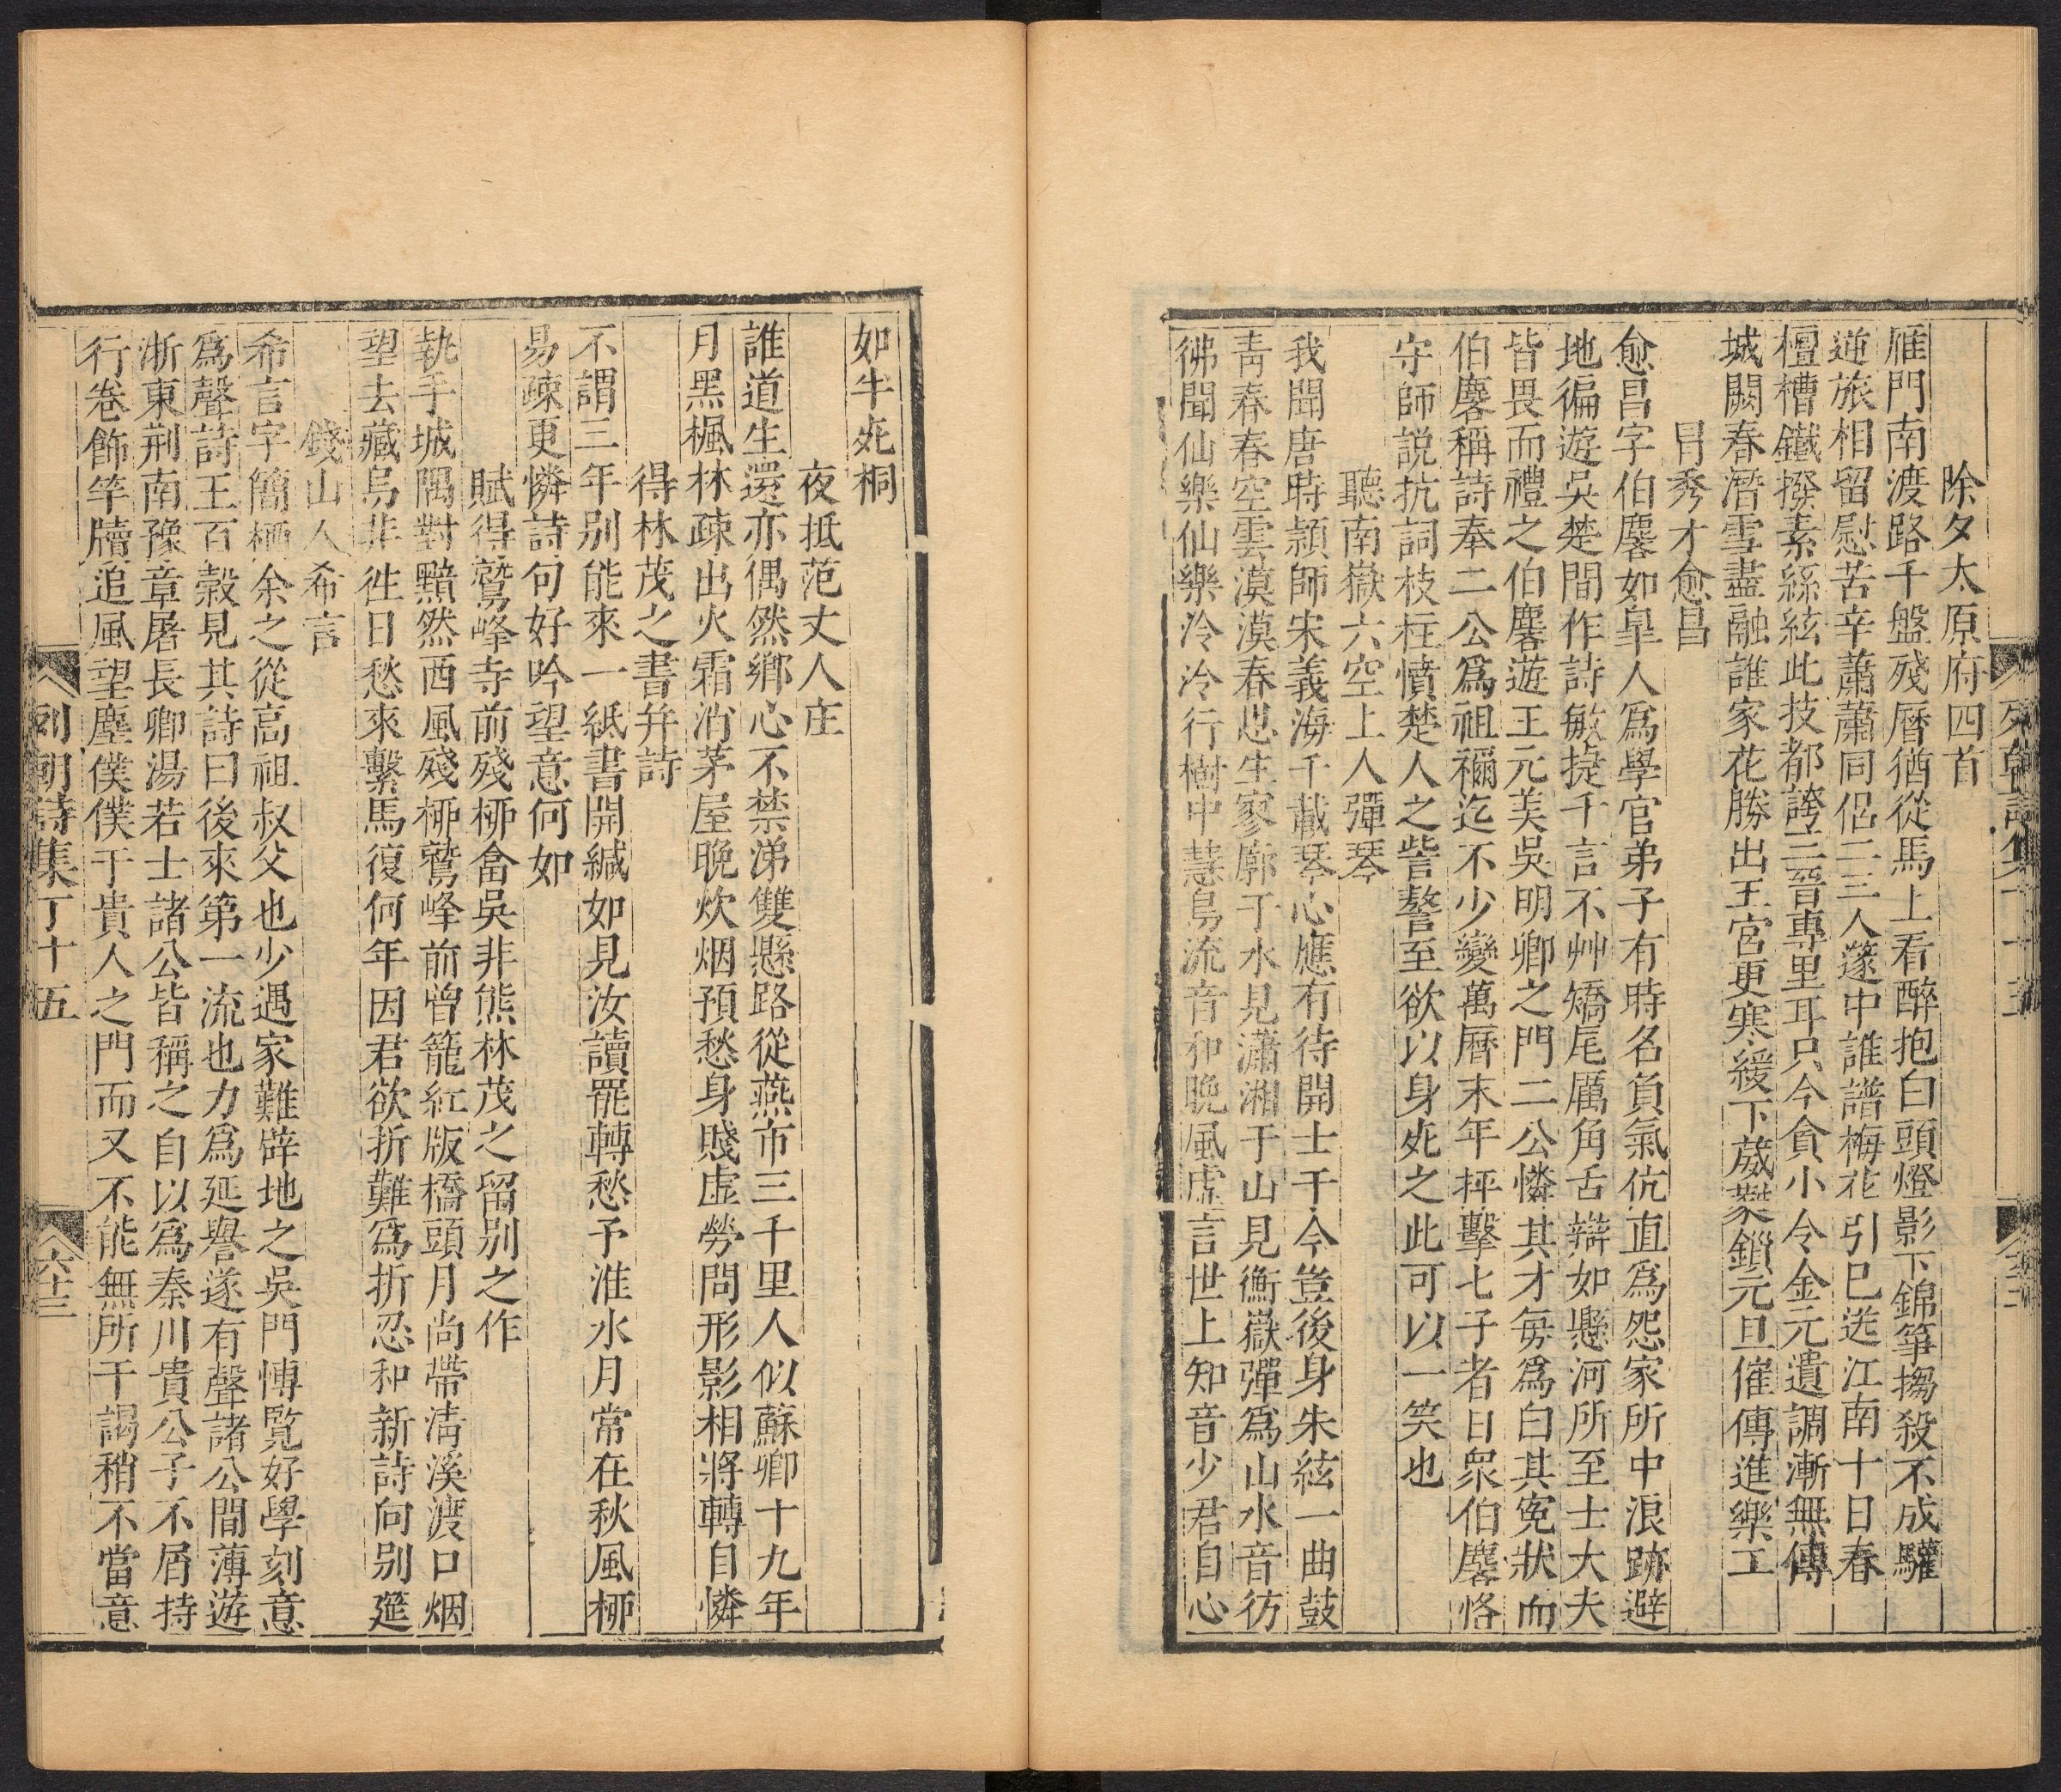 除夕太原府四首
雁門南渡路千盤殘曆猶從馬上看醉抱白頭燈影下錦箏搊殺不成驩
逆旅相留慰苦辛蕭蕭同侶二三人篷中誰譜梅花引已送江南十日春
檀槽鐵撥素絲絃此技都誇三晉專里耳只今貪小令金元遺調漸無傳
城闕春潛雪盡融誰家花勝出王宮更寒緩下葳蕤鎖元旦催傳進樂工
冐秀才愈昌
愈昌字伯麐如臯人爲學官弟子有時名負氣伉直爲怨家所中浪跡避
地徧遊吳楚間作詩敏捷千言不艸矯尾厲角舌辯如懸河所至士大夫
皆畏而禮之伯麐遊王元美吳明卿之門二公憐其才毎爲白其寃狀而
伯麐稱詩奉二公爲祖禰迄不少變萬曆末年抨擊七子者日衆伯麐恪
守師説抗詞枝柱憤楚人之訾謷至欲以身死之此可以一笑也
聽南嶽六空上人彈琴
我聞唐時頴師宋義海千載琴心應有待開士于今豈後身朱絃一曲鼓
靑春春空雲漠漠春思生寥廓于水見瀟湘于山見衡嶽彈爲山水音彷
彿聞仙樂仙樂泠泠行樹中慧鳥流音和晚風虛言世上知音少君自心
列朝詩集丁十五
如牛死桐
夜抵范丈人庄
誰道生還亦偶然鄉心不禁涕雙懸路從燕市三千里人似蘇卿十九年
月黑楓林疎出火霜消茅屋晚炊烟預愁身賤虛勞問形影相將轉自憐
得林茂之書幷詩
不謂三年别能來一紙書開緘如見汝讀罷轉愁予淮水月常在秋風栁
易疎更憐詩句好吟望意何如
賦得鷲峰寺前殘栁畣吳非熊林茂之留别之作
執手城隅對黯然西風殘栁鷲峰前曾籠紅版橋頭月尚帶淸溪渡口烟
望去藏烏非徃日愁來繫馬復何年因君欲折難爲折忍和新詩向别筵
錢山人希言
希言字簡栖余之從高祖叔父也少遇家難辟地之吳門博覽好學刻意
爲聲詩王百穀見其詩曰後來第一流也力爲延譽遂有聲諸公間薄遊
浙東荆南豫章屠長卿湯若士諸公皆稱之自以爲秦川貴公子不屑持
行卷飾竿牘追風望塵僕僕于貴人之門而又不能無所干謁稍不當意
列朝詩集丁十五
六十三